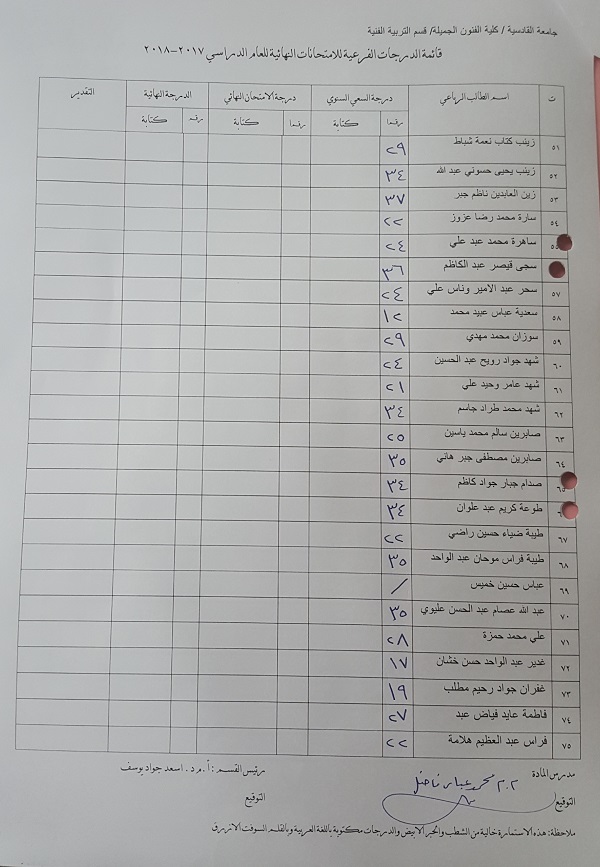 جامعة القادسية / كلية الفنون الجميلة/ قسم التربية الفنية
قائمة الدرجات الفرعية للامتحانات النهائية للعام الدراسي ٢٠١٧-٢٠١٨
ت اسم الطالب الرباعي درجة السعي السنوي درجة الامتحان النهائي الدرجة النهائية التقدير
رقما كتابة رقما كتابة رقما كتابة
٥١ زينب كتاب نعمة شباط ٢٩
٥٢ زينب يحيى حسوني عبد الله ٣٤
٥٣ زين العابدين ناظم جبر ٣٧
٥٤ سارة محمد رضا عزوز ٢٢
٥٥ ساهرة محمد عبد علي ٢٤
سجى قيصر عبد الكاظم ٣٦
٥٧ سحر عبد الامير وناس علي ٢٤
٥٨ سعدية عباس عبيد محمد ١٢
٥٩ سوزان محمد مهدي ٢٩
٦٠ شهد جواد رويح عبد الحسين ٢٤
٦١ شهد عامر وحيد علي ٢١
٦٢ شهد محمد طراد جاسم ٣٤
٦٣ صابرين سالم محمد ياسين ٢٥
٦٤ صابرين مصطفى جبر هاني ٣٥
٦٥ صدام جبار جواد كاظم ٣٤
طوعة كريم عبد علوان ٣٤
٦٧ طيبة ضياء حسين راضي ٢٢
٦٨ طيبة فراس موحان عبد الواحد ٣٥
٦٩ عباس حسين خميس /
٧٠ عبد الله عصام عبد الحسن عليوي ٣٥
٧١ علي محمد حمزة ٢٨
٧٢ غدير عبد الواحد حسن خشان ١٧
٧٣ غفران جواد رحيم مطلب ١٩
٧٤ فاطمة عايد فياض عبد ٢٧
٧٥ فراس عبد العظيم هلامة ٢٢
مدرس المادة رئيس القسم : أ.م.د. اسعد جواد يوسف
م.م محمد عباس فاضل
التوقيع التوقيع
ملاحظة: هذه الاستمارة خالية من الشطب والحبر الابيض والدرجات مكتوبة باللغة العربية وبالقلم السوفت الازرق